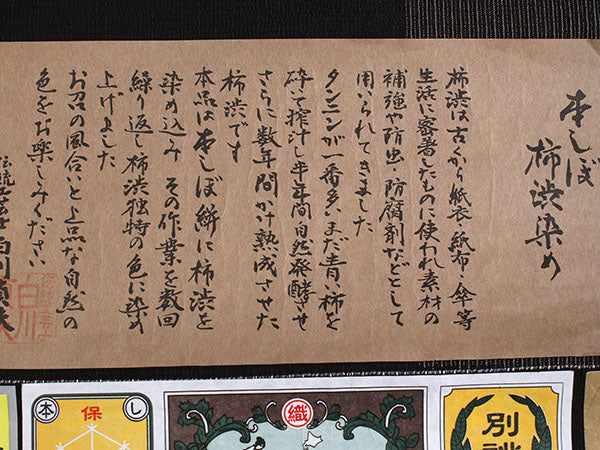 本しぼ
柿渋染め
柿渋は古くから紙衣・紙布・傘等
生活に密着したものに使われ素材の
補強や防虫・防腐剤などとして
用いられてきました
タンニンが一番多いまだ青い柿を
砕て搾汁し半年間自然発酵させ
さらに数年間かけ熟成させた
柿渋です
本品は本しぼ餅に柿渋を
染め込み その作業を数回
繰り返し柿渋独特の色に染め
上げました
お召の風合いと上品な自然の
色をお楽しみください
伝統工芸士 白川
本
保
し
織
別